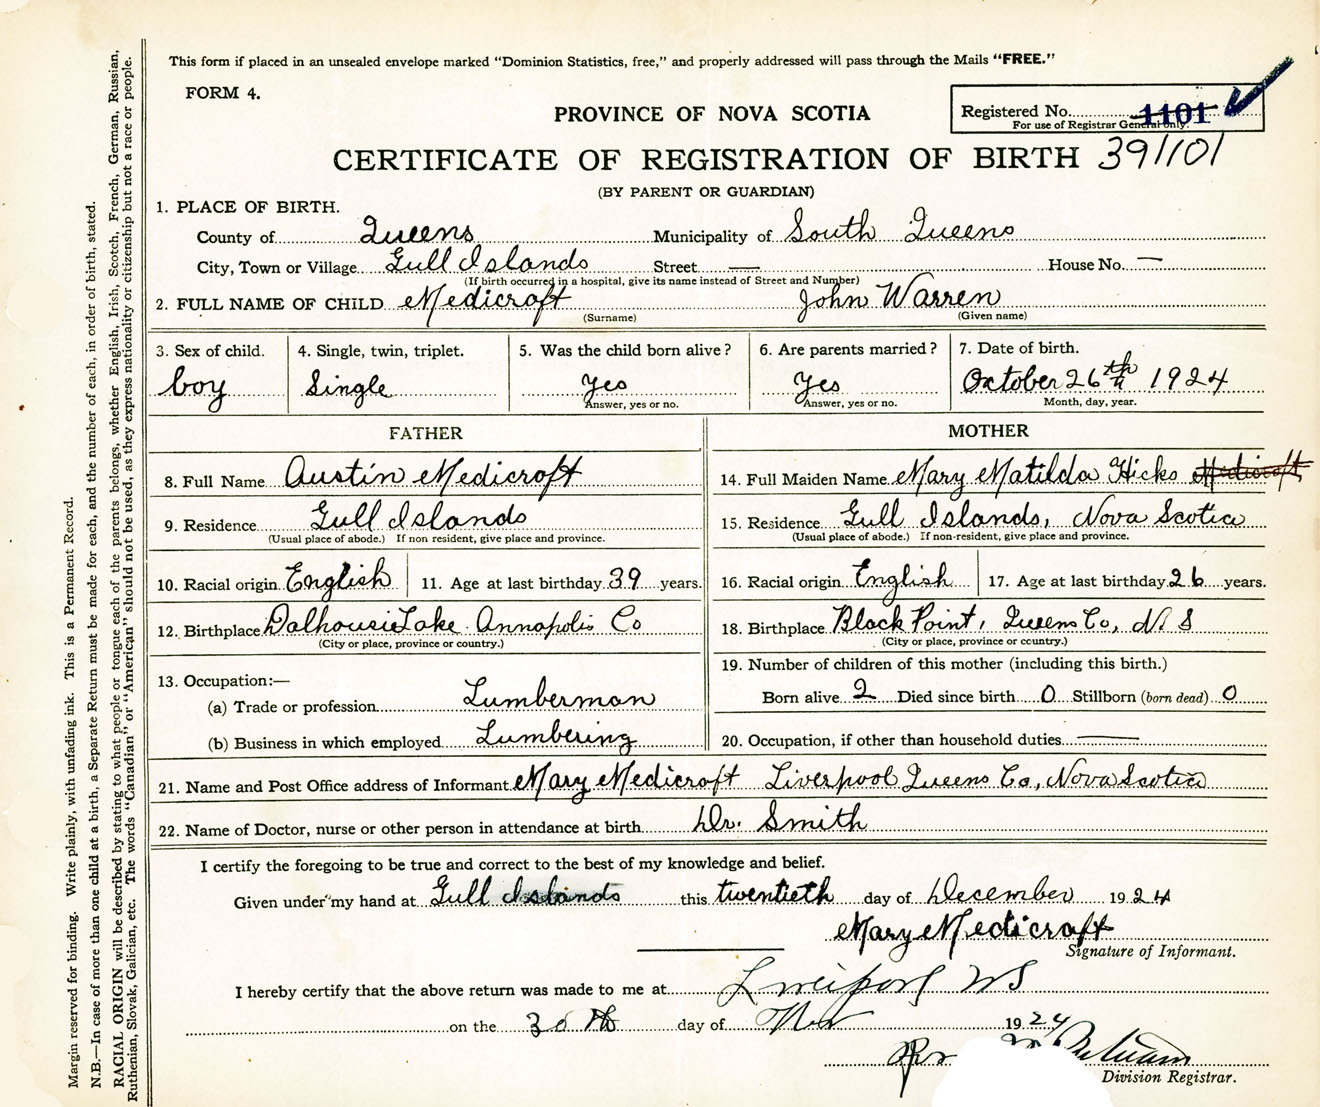 This form if placed in an unsealed envelope marked "Dominion Statistics, free," and properly addressed will pass through the Mails "FREE."
FORM 4.
PROVINCE OF NOVA SCOTIA
Registered No. 1101
For use of Registrar General only.
CERTIFICATE OF REGISTRATION OF BIRTH 391101
(BY PARENT OR GUARDIAN)
1. PLACE OF BIRTH.
County of Queens Municipality of South Queens
City, Town or Village Gull Islands Street — House No. —
(If birth occurred in a hospital, give its name instead of Street and Number)
2. FULL NAME OF CHILD Medicroft John Warren
(Surname) (Given name)
3. Sex of child. 4. Single, twin, triplet. 5. Was the child born alive? 6. Are parents married? 7. Date of birth.
boy Single Yes Yes October 26th 1924
Answer, yes or no. Answer, yes or no. Month, day, year.
FATHER MOTHER
8. Full Name Austin Medicroft 14. Full Maiden Name Mary Matilda Hicks Medicroft
9. Residence Gull Islands 15. Residence Gull Islands, Nova Scotia
(Usual place of abode.) If non resident, give place and province. (Usual place of abode.) If non-resident, give place and province.
10. Racial origin English 11. Age at last birthday 39 years. 16. Racial origin English 17. Age at last birthday 26 years.
12. Birthplace Dalhousie Lake Annapolis Co 18. Birthplace Black Point, Queens Co, N. S
(City or place, province or country.) (City or place, province or country.)
13. Occupation:— 19. Number of children of this mother (including this birth.)
(a) Trade or profession Lumberman Born alive 2 Died since birth 0 Stillborn (born dead) 0
(b) Business in which employed Lumbering 20. Occupation, if other than household duties —
21. Name and Post Office address of Informant Mary Medicroft Liverpool Queens Co, Nova Scotia
22. Name of Doctor, nurse or other person in attendance at birth Dr. Smith
I certify the foregoing to be true and correct to the best of my knowledge and belief.
Given under my hand at Gull Islands this twentieth day of December 1924
Mary Medicroft
Signature of Informant.
I hereby certify that the above return was made to me at Liverpool NS
on the 30th day of 1924
Division Registrar.
Margin reserved for binding. Write plainly, with unfading ink. This is a Permanent Record.
N.B.—In case of more than one child at a birth, a Separate Return must be made for each, and the number of each, in order of birth, stated.
RACIAL ORIGIN will be described by stating to what people or tongue each of the parents belongs, whether English, Irish, Scotch, French, German, Russian,
Ruthenian, Slovak, Galician, etc. The words "Canadian" or "American" should not be used, as they express nationality or citizenship but not a race or people.